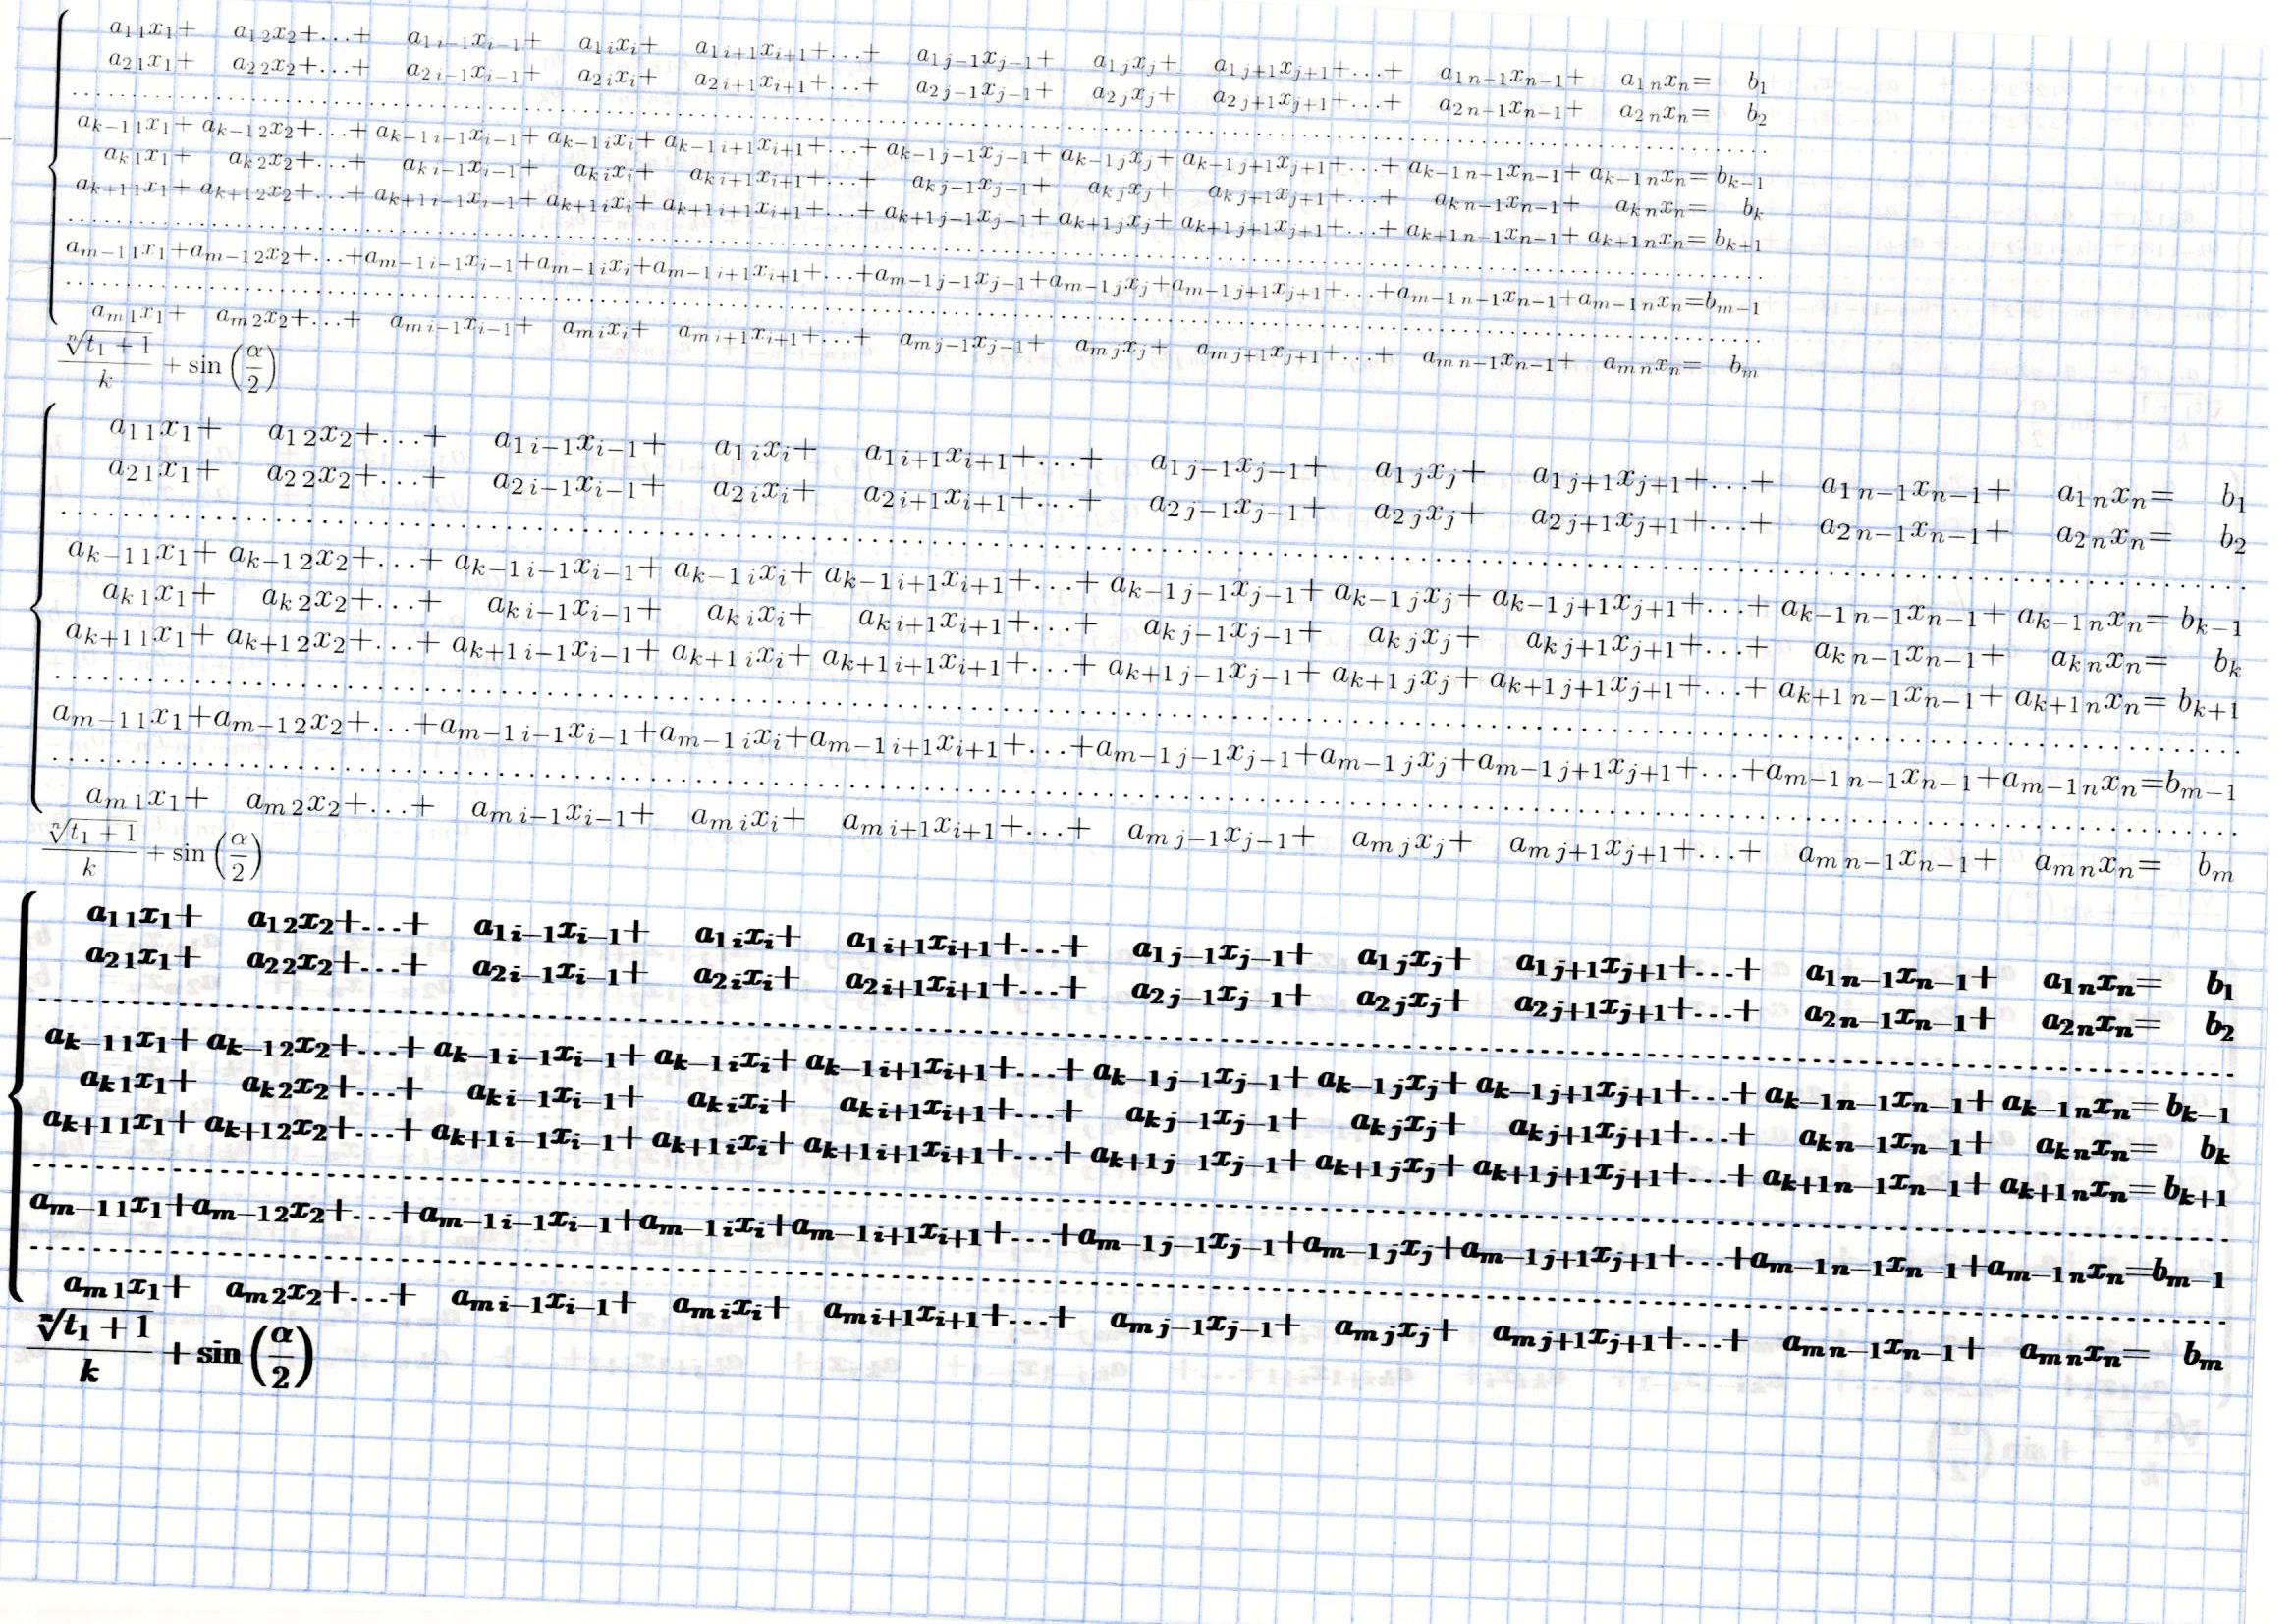 a₁₁x₁+ a₁₂x₂+…+ a₁ᵢ₋₁xᵢ₋₁+ a₁ᵢxᵢ+ a₁ᵢ₊₁xᵢ₊₁+…+ a₁ⱼ₋₁xⱼ₋₁+ a₁ⱼxⱼ+ a₁ⱼ₊₁xⱼ₊₁+…+ a₁ₙ₋₁xₙ₋₁+ a₁ₙxₙ= b₁
a₂₁x₁+ a₂₂x₂+…+ a₂ᵢ₋₁xᵢ₋₁+ a₂ᵢxᵢ+ a₂ᵢ₊₁xᵢ₊₁+…+ a₂ⱼ₋₁xⱼ₋₁+ a₂ⱼxⱼ+ a₂ⱼ₊₁xⱼ₊₁+…+ a₂ₙ₋₁xₙ₋₁+ a₂ₙxₙ= b₂
........................................
aₖ₋₁₁x₁+ aₖ₋₁₂x₂+…+ aₖ₋₁ᵢ₋₁xᵢ₋₁+ aₖ₋₁ᵢxᵢ+ aₖ₋₁ᵢ₊₁xᵢ₊₁+…+ aₖ₋₁ⱼ₋₁xⱼ₋₁+ aₖ₋₁ⱼxⱼ+ aₖ₋₁ⱼ₊₁xⱼ₊₁+…+ aₖ₋₁ₙ₋₁xₙ₋₁+ aₖ₋₁ₙxₙ= bₖ₋₁
aₖ₁x₁+ aₖ₂x₂+…+ aₖᵢ₋₁xᵢ₋₁+ aₖᵢxᵢ+ aₖᵢ₊₁xᵢ₊₁+…+ aₖⱼ₋₁xⱼ₋₁+ aₖⱼxⱼ+ aₖⱼ₊₁xⱼ₊₁+…+ aₖₙ₋₁xₙ₋₁+ aₖₙxₙ= bₖ
aₖ₊₁₁x₁+ aₖ₊₁₂x₂+…+ aₖ₊₁ᵢ₋₁xᵢ₋₁+ aₖ₊₁ᵢxᵢ+ aₖ₊₁ᵢ₊₁xᵢ₊₁+…+ aₖ₊₁ⱼ₋₁xⱼ₋₁+ aₖ₊₁ⱼxⱼ+ aₖ₊₁ⱼ₊₁xⱼ₊₁+…+ aₖ₊₁ₙ₋₁xₙ₋₁+ aₖ₊₁ₙxₙ= bₖ₊₁
........................................
aₘ₋₁₁x₁+aₘ₋₁₂x₂+…+aₘ₋₁ᵢ₋₁xᵢ₋₁+aₘ₋₁ᵢxᵢ+aₘ₋₁ᵢ₊₁xᵢ₊₁+…+aₘ₋₁ⱼ₋₁xⱼ₋₁+aₘ₋₁ⱼxⱼ+aₘ₋₁ⱼ₊₁xⱼ₊₁+…+aₘ₋₁ₙ₋₁xₙ₋₁+aₘ₋₁ₙxₙ=bₘ₋₁
........................................
aₘ₁x₁+ aₘ₂x₂+…+ aₘᵢ₋₁xᵢ₋₁+ aₘᵢxᵢ+ aₘᵢ₊₁xᵢ₊₁+…+ aₘⱼ₋₁xⱼ₋₁+ aₘⱼxⱼ+ aₘⱼ₊₁xⱼ₊₁+…+ aₘₙ₋₁xₙ₋₁+ aₘₙxₙ= bₘ
ⁿ√(t₁ + 1)/k + sin(α/2)
a₁₁x₁+ a₁₂x₂+…+ a₁ᵢ₋₁xᵢ₋₁+ a₁ᵢxᵢ+ a₁ᵢ₊₁xᵢ₊₁+…+ a₁ⱼ₋₁xⱼ₋₁+ a₁ⱼxⱼ+ a₁ⱼ₊₁xⱼ₊₁+…+ a₁ₙ₋₁xₙ₋₁+ a₁ₙxₙ= b₁
a₂₁x₁+ a₂₂x₂+…+ a₂ᵢ₋₁xᵢ₋₁+ a₂ᵢxᵢ+ a₂ᵢ₊₁xᵢ₊₁+…+ a₂ⱼ₋₁xⱼ₋₁+ a₂ⱼxⱼ+ a₂ⱼ₊₁xⱼ₊₁+…+ a₂ₙ₋₁xₙ₋₁+ a₂ₙxₙ= b₂
........................................
aₖ₋₁₁x₁+ aₖ₋₁₂x₂+…+ aₖ₋₁ᵢ₋₁xᵢ₋₁+ aₖ₋₁ᵢxᵢ+ aₖ₋₁ᵢ₊₁xᵢ₊₁+…+ aₖ₋₁ⱼ₋₁xⱼ₋₁+ aₖ₋₁ⱼxⱼ+ aₖ₋₁ⱼ₊₁xⱼ₊₁+…+ aₖ₋₁ₙ₋₁xₙ₋₁+ aₖ₋₁ₙxₙ= bₖ₋₁
aₖ₁x₁+ aₖ₂x₂+…+ aₖᵢ₋₁xᵢ₋₁+ aₖᵢxᵢ+ aₖᵢ₊₁xᵢ₊₁+…+ aₖⱼ₋₁xⱼ₋₁+ aₖⱼxⱼ+ aₖⱼ₊₁xⱼ₊₁+…+ aₖₙ₋₁xₙ₋₁+ aₖₙxₙ= bₖ
aₖ₊₁₁x₁+ aₖ₊₁₂x₂+…+ aₖ₊₁ᵢ₋₁xᵢ₋₁+ aₖ₊₁ᵢxᵢ+ aₖ₊₁ᵢ₊₁xᵢ₊₁+…+ aₖ₊₁ⱼ₋₁xⱼ₋₁+ aₖ₊₁ⱼxⱼ+ aₖ₊₁ⱼ₊₁xⱼ₊₁+…+ aₖ₊₁ₙ₋₁xₙ₋₁+ aₖ₊₁ₙxₙ= bₖ₊₁
........................................
aₘ₋₁₁x₁+aₘ₋₁₂x₂+…+aₘ₋₁ᵢ₋₁xᵢ₋₁+aₘ₋₁ᵢxᵢ+aₘ₋₁ᵢ₊₁xᵢ₊₁+…+aₘ₋₁ⱼ₋₁xⱼ₋₁+aₘ₋₁ⱼxⱼ+aₘ₋₁ⱼ₊₁xⱼ₊₁+…+aₘ₋₁ₙ₋₁xₙ₋₁+aₘ₋₁ₙxₙ=bₘ₋₁
........................................
aₘ₁x₁+ aₘ₂x₂+…+ aₘᵢ₋₁xᵢ₋₁+ aₘᵢxᵢ+ aₘᵢ₊₁xᵢ₊₁+…+ aₘⱼ₋₁xⱼ₋₁+ aₘⱼxⱼ+ aₘⱼ₊₁xⱼ₊₁+…+ aₘₙ₋₁xₙ₋₁+ aₘₙxₙ= bₘ
ⁿ√(t₁ + 1)/k + sin(α/2)
a₁₁x₁+ a₁₂x₂+…+ a₁ᵢ₋₁xᵢ₋₁+ a₁ᵢxᵢ+ a₁ᵢ₊₁xᵢ₊₁+…+ a₁ⱼ₋₁xⱼ₋₁+ a₁ⱼxⱼ+ a₁ⱼ₊₁xⱼ₊₁+…+ a₁ₙ₋₁xₙ₋₁+ a₁ₙxₙ= b₁
a₂₁x₁+ a₂₂x₂+…+ a₂ᵢ₋₁xᵢ₋₁+ a₂ᵢxᵢ+ a₂ᵢ₊₁xᵢ₊₁+…+ a₂ⱼ₋₁xⱼ₋₁+ a₂ⱼxⱼ+ a₂ⱼ₊₁xⱼ₊₁+…+ a₂ₙ₋₁xₙ₋₁+ a₂ₙxₙ= b₂
........................................
aₖ₋₁₁x₁+ aₖ₋₁₂x₂+…+ aₖ₋₁ᵢ₋₁xᵢ₋₁+ aₖ₋₁ᵢxᵢ+ aₖ₋₁ᵢ₊₁xᵢ₊₁+…+ aₖ₋₁ⱼ₋₁xⱼ₋₁+ aₖ₋₁ⱼxⱼ+ aₖ₋₁ⱼ₊₁xⱼ₊₁+…+ aₖ₋₁ₙ₋₁xₙ₋₁+ aₖ₋₁ₙxₙ= bₖ₋₁
aₖ₁x₁+ aₖ₂x₂+…+ aₖᵢ₋₁xᵢ₋₁+ aₖᵢxᵢ+ aₖᵢ₊₁xᵢ₊₁+…+ aₖⱼ₋₁xⱼ₋₁+ aₖⱼxⱼ+ aₖⱼ₊₁xⱼ₊₁+…+ aₖₙ₋₁xₙ₋₁+ aₖₙxₙ= bₖ
aₖ₊₁₁x₁+ aₖ₊₁₂x₂+…+ aₖ₊₁ᵢ₋₁xᵢ₋₁+ aₖ₊₁ᵢxᵢ+ aₖ₊₁ᵢ₊₁xᵢ₊₁+…+ aₖ₊₁ⱼ₋₁xⱼ₋₁+ aₖ₊₁ⱼxⱼ+ aₖ₊₁ⱼ₊₁xⱼ₊₁+…+ aₖ₊₁ₙ₋₁xₙ₋₁+ aₖ₊₁ₙxₙ= bₖ₊₁
........................................
aₘ₋₁₁x₁+aₘ₋₁₂x₂+…+aₘ₋₁ᵢ₋₁xᵢ₋₁+aₘ₋₁ᵢxᵢ+aₘ₋₁ᵢ₊₁xᵢ₊₁+…+aₘ₋₁ⱼ₋₁xⱼ₋₁+aₘ₋₁ⱼxⱼ+aₘ₋₁ⱼ₊₁xⱼ₊₁+…+aₘ₋₁ₙ₋₁xₙ₋₁+aₘ₋₁ₙxₙ=bₘ₋₁
........................................
aₘ₁x₁+ aₘ₂x₂+…+ aₘᵢ₋₁xᵢ₋₁+ aₘᵢxᵢ+ aₘᵢ₊₁xᵢ₊₁+…+ aₘⱼ₋₁xⱼ₋₁+ aₘⱼxⱼ+ aₘⱼ₊₁xⱼ₊₁+…+ aₘₙ₋₁xₙ₋₁+ aₘₙxₙ= bₘ
ⁿ√(t₁ + 1)/k + sin(α/2)